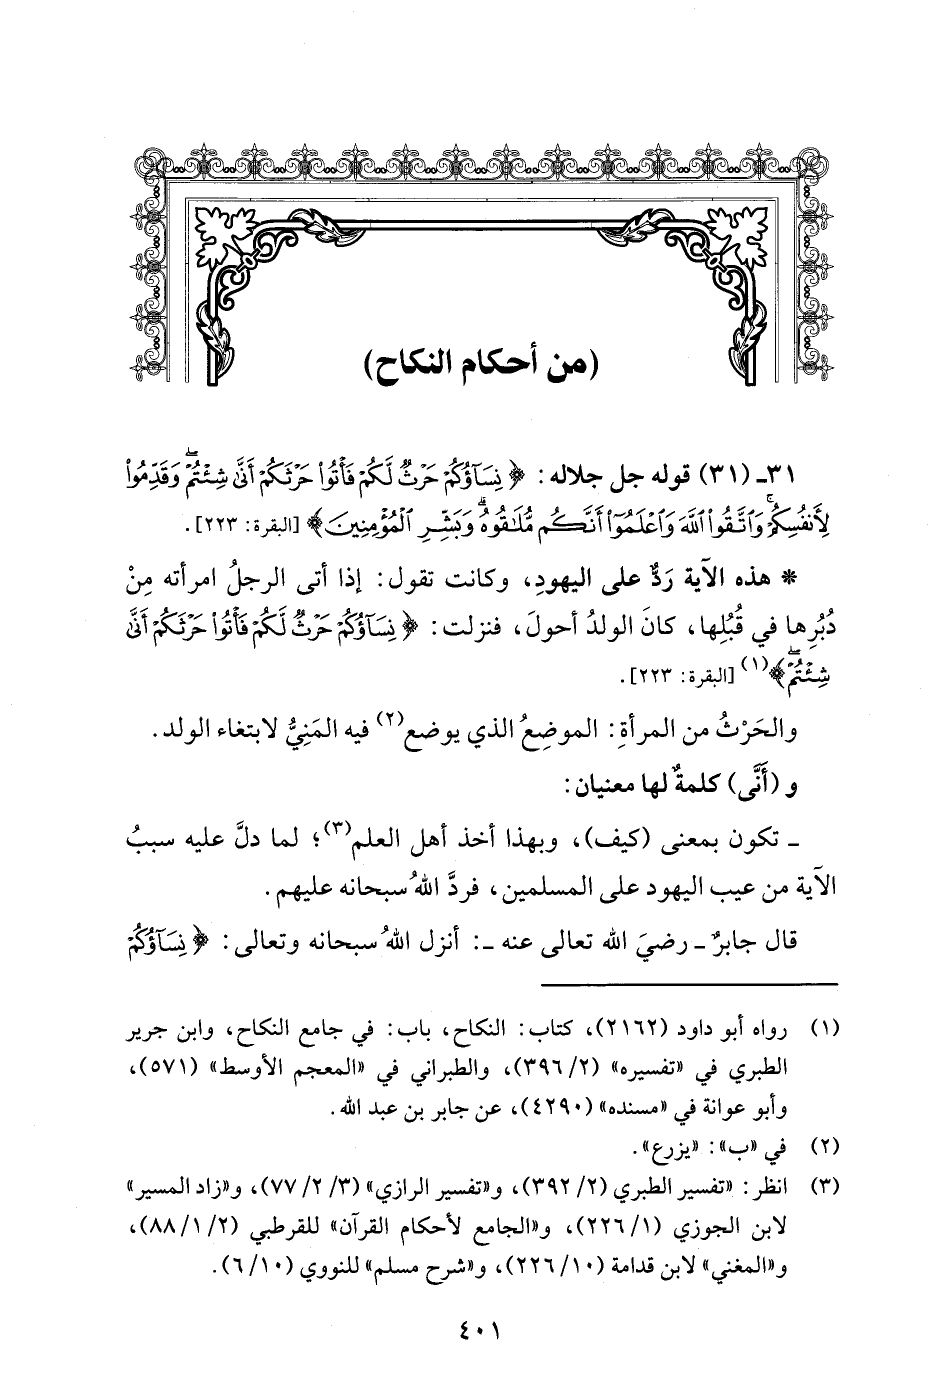 (من أحكام النكاح)
٣١ـ (٣١) قوله جل جلاله: ﴿نِسَآؤُكُمْ حَرْثٌ لَّكُمْ فَأْتُوا۟ حَرْثَكُمْ أَنَّىٰ شِئْتُمْ ۖ وَقَدِّمُوا۟
لِأَنفُسِكُمْ ۚ وَٱتَّقُوا۟ ٱللَّهَ وَٱعْلَمُوٓا۟ أَنَّكُم مُّلَـٰقُوهُ ۗ وَبَشِّرِ ٱلْمُؤْمِنِينَ﴾ [البقرة: ٢٢٣].
* هذه الآية رَدٌّ على اليهودِ، وكانت تقول: إذا أتى الرجلُ امرأته مِنْ
دُبُرِها في قُبُلِها، كانَ الولدُ أحولَ، فنزلت: ﴿نِسَآؤُكُمْ حَرْثٌ لَّكُمْ فَأْتُوا۟ حَرْثَكُمْ أَنَّىٰ
شِئْتُمْ ۖ﴾(١) [البقرة: ٢٢٣].
والحَرْثُ من المرأةِ: الموضِعُ الذي يوضع(٢) فيه المَنِيُّ لابتغاء الولد.
و (أَنَّى) كلمةٌ لها معنيان:
ـ تكون بمعنى (كيف)، وبهذا أخذ أهل العلم(٣)؛ لما دلَّ عليه سببُ
الآية من عيب اليهود على المسلمين، فردَّ اللهُ سبحانه عليهم.
قال جابرٌ ـ رضيَ الله تعالى عنه ـ: أنزل اللهُ سبحانه وتعالى: ﴿نِسَآؤُكُمْ
(١) رواه أبو داود (٢١٦٢)، كتاب: النكاح، باب: في جامع النكاح، وابن جرير
الطبري في «تفسيره» (٣٩٦/٢)، والطبراني في «المعجم الأوسط» (٥٧١)،
وأبو عوانة في «مسنده» (٤٢٩٠)، عن جابر بن عبد الله.
(٢) في «ب»: «يزرع».
(٣) انظر: «تفسير الطبري (٣٩٢/٢)، و«تفسير الرازي» (٧٧/٢/٣)، و«زاد المسير»
لابن الجوزي (٢٢٦/١)، و«الجامع لأحكام القرآن» للقرطبي (٨٨/١/٢)،
و«المغني» لابن قدامة (٢٢٦/١٠)، و«شرح مسلم» للنووي (٦/١٠).
٤٠١